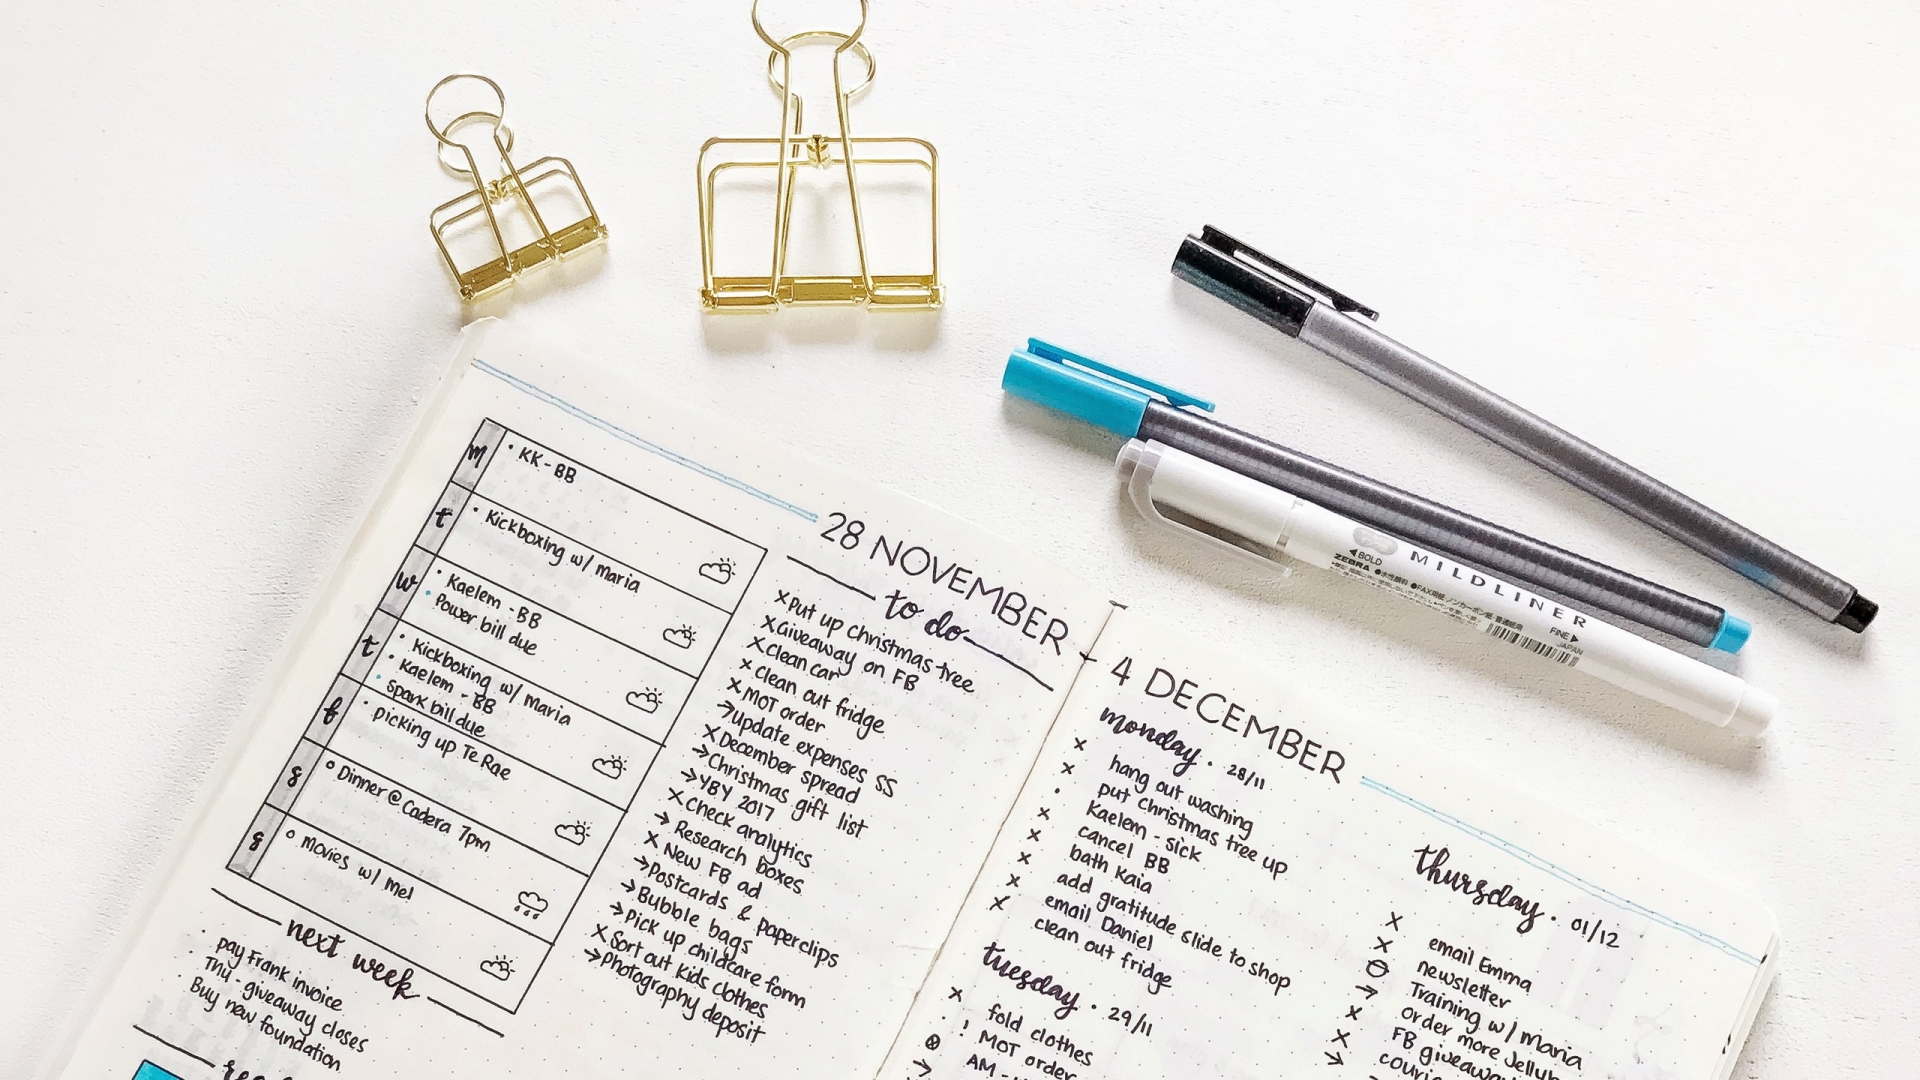 28 NOVEMBER
m
• KK - BB
t
• Kickboxing w/ maria
w
• Kaelem - BB
• Power bill due
t
• Kickboxing w/ maria
• Kaelem - BB
• Spark bill due
f
• picking up Te Rae
s
o Dinner @ Cadera 7pm
s
o movies w/ mel
to do
x Put up christmas tree
x Giveaway on FB
x clean car
x clean out fridge
x MOT order
→ update expenses SS
x December spread
→ Christmas gift list
→ YBY 2017
x check analytics
→ Research boxes
x New FB ad
→ Postcards & paperclips
→ Bubble bags
→ Pick up childcare form
x Sort out kids clothes
→ Photography deposit
next week
• pay Frank invoice
• Thu - giveaway closes
• Buy new foundation
4 DECEMBER
monday • 28/11
x hang out washing
x put christmas tree up
• Kaelem - sick
x cancel BB
x bath Kaia
x add gratitude slide to shop
x email Daniel
x clean out fridge
tuesday • 29/11
x fold clothes
! MOT order
AM -
thursday • 01/12
x email Emma
x newsletter
Training w/ maria
→ order more
x FB
x
→
MILDLINER
◀BOLD
ZEBRA
FINE▶
JAPAN